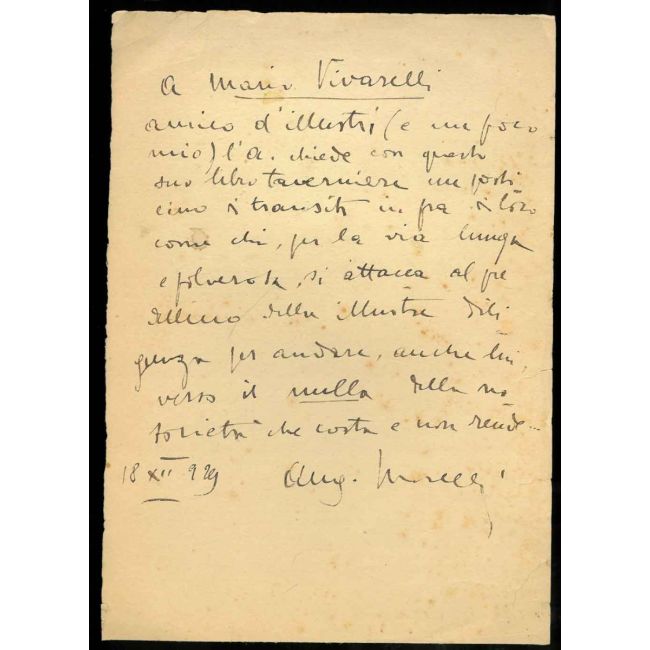 A Mario Vivarelli
amico d'illustri (e un poco
mio) l'a. chiede con questo
suo libro taverniere un posti
cino di transito in fra di loro
come chi, per la via lunga
e polverosa, si attacca al pre
dellino della illustre dili
genza per andare, anche lui,
verso il nulla della no
torietà che costa e non rende...
18 XII 929 Aug. Morelli